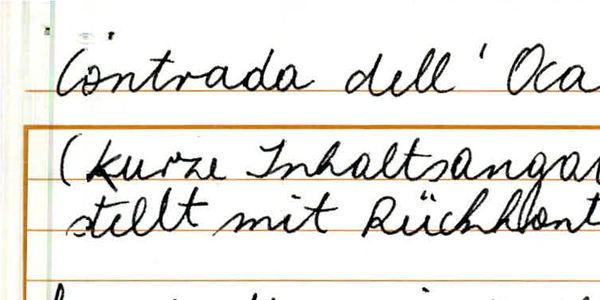 Contrada dell' Oca
(kurze Inhaltsanga
stellt mit Rück